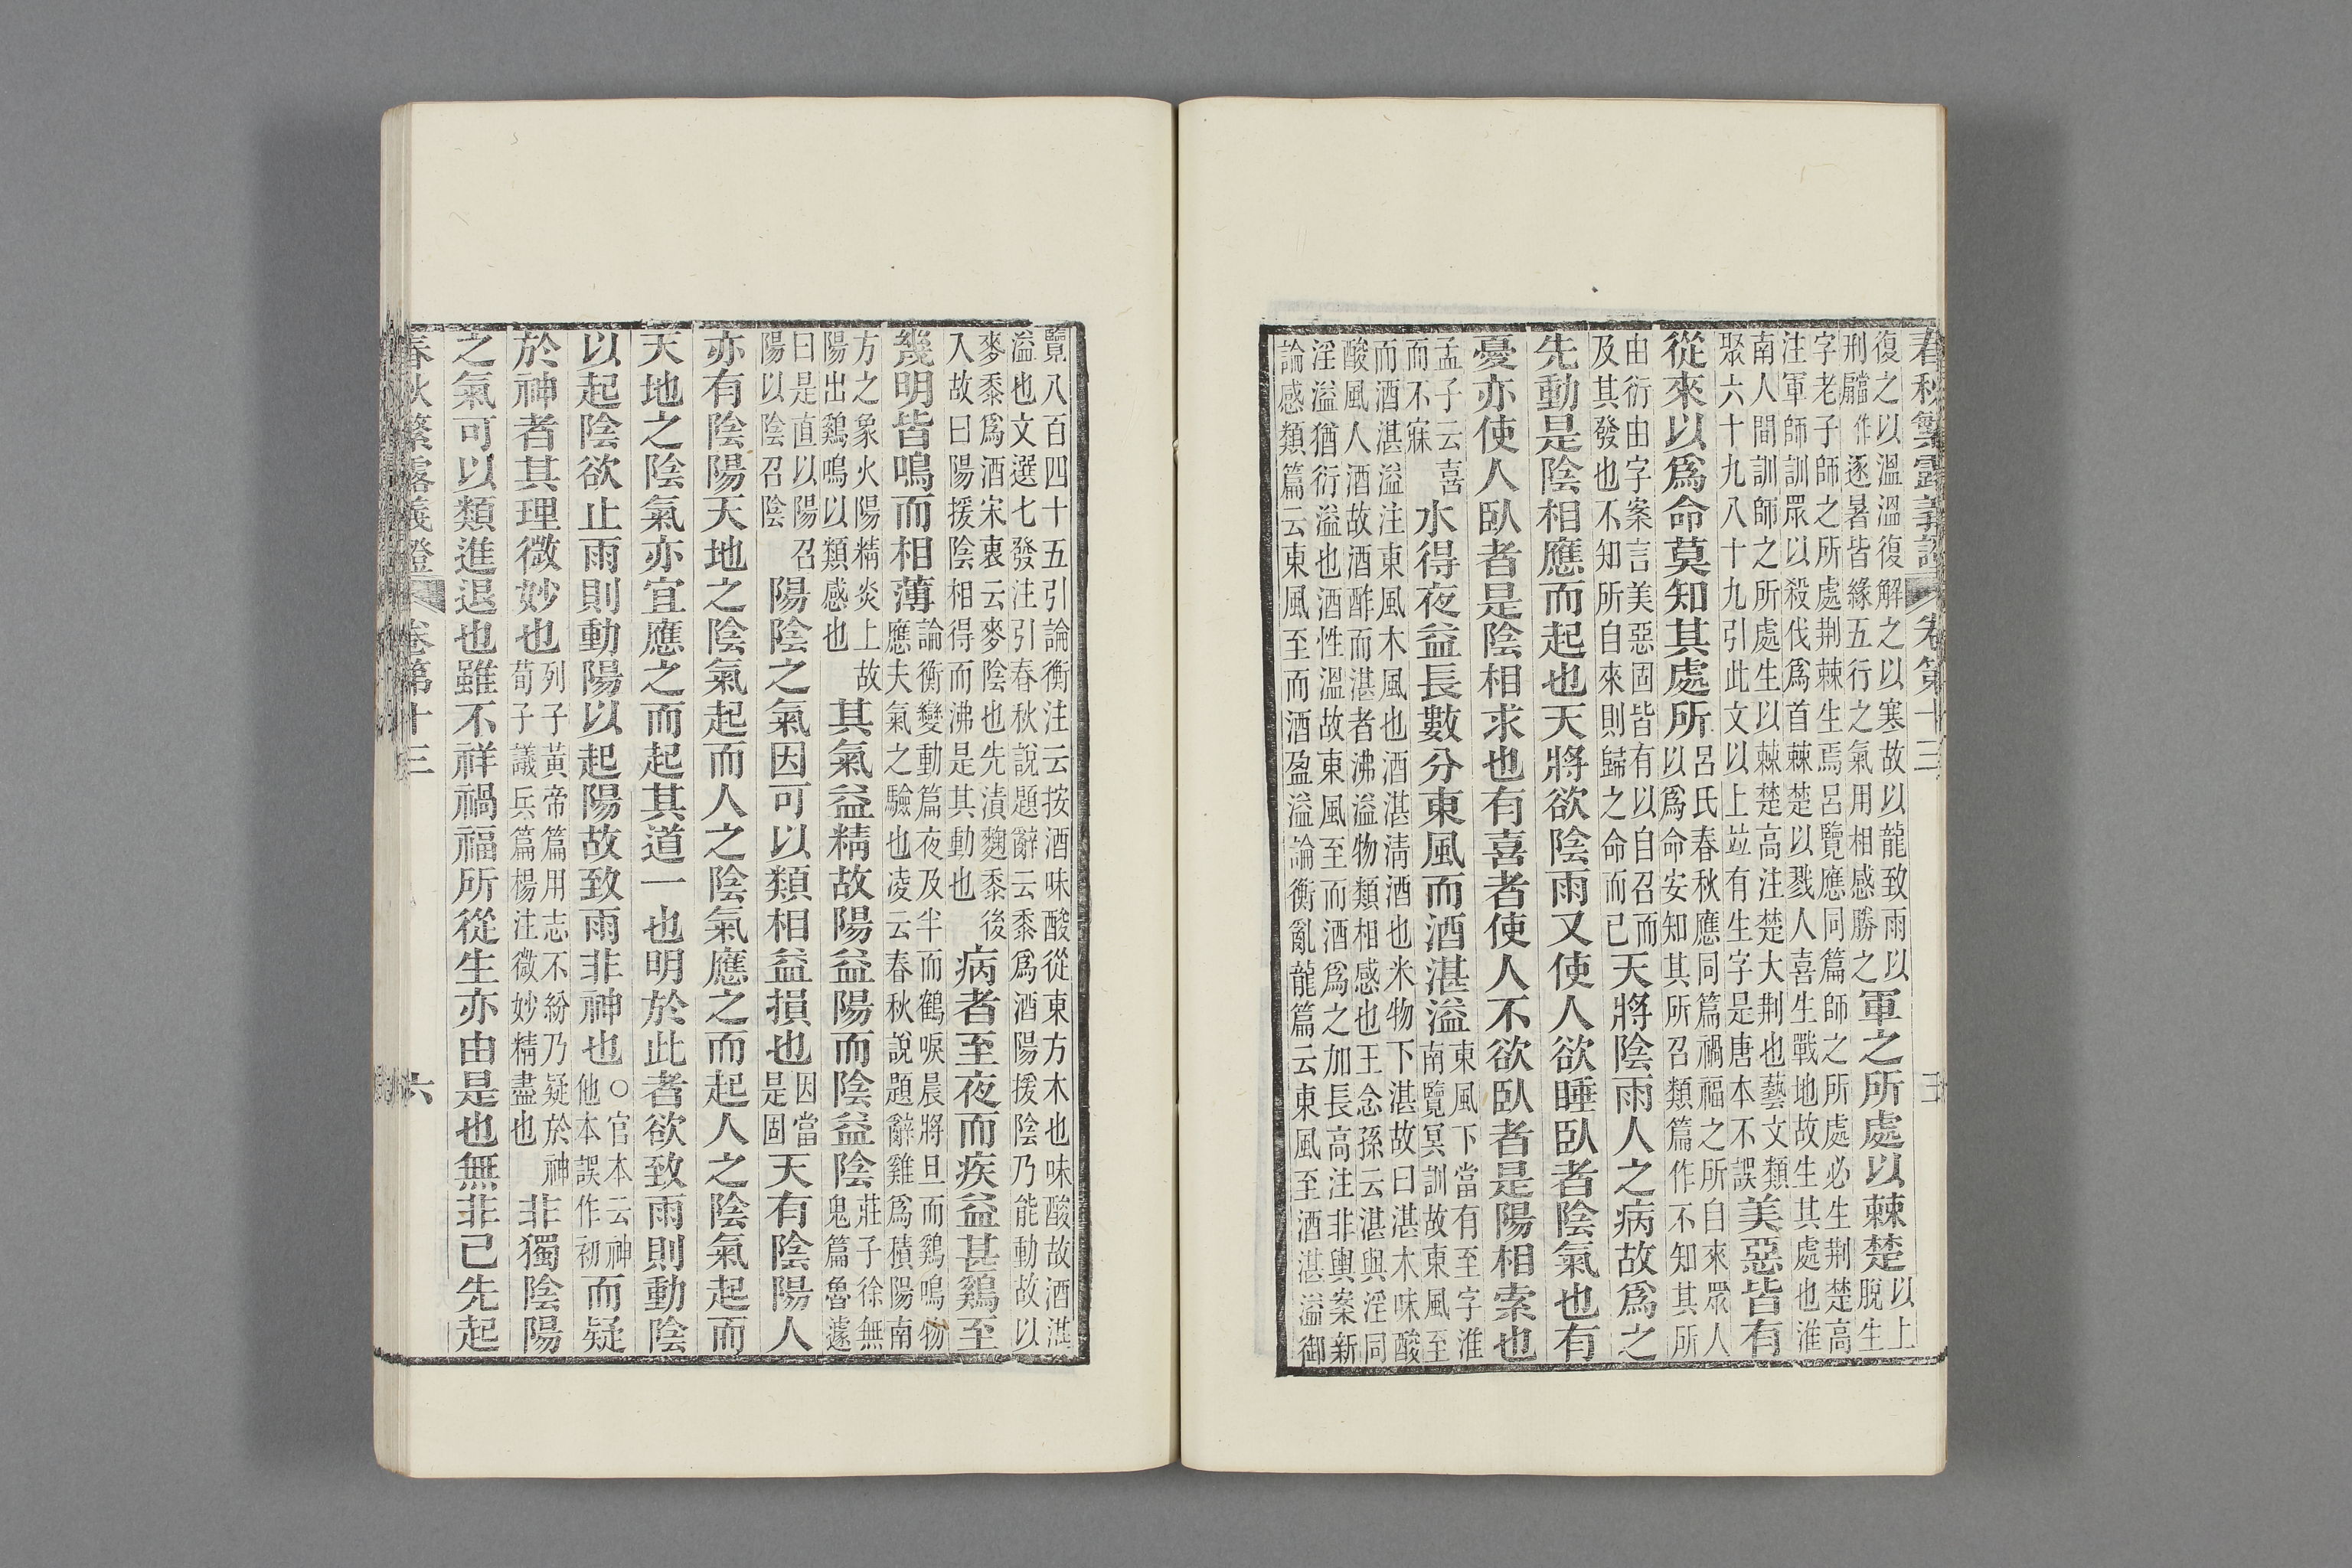 春秋繁露義證　卷第十三　五
復之以溫溫復解之以寒故以龍致雨以
刑作逐暑皆緣五行之氣用相感勝之
軍之所處以棘楚
以上
脫生
字老子師之所處荊棘生焉呂覽應同篇師之所處必生荊楚高
注軍師訓眾以殺伐爲首棘楚以戮人喜生戰地故生其處也淮
南人間訓師之所處生以棘楚高注楚大荊也藝文類
聚六十九八十九引此文以上竝有生字是唐本不誤
美惡皆有
從來以爲命莫知其處所
呂氏春秋應同篇禍福之所自來眾人
以爲命安知其所召類篇作不知其所
由衍由字案言美惡固皆有以自召而
及其發也不知所自來則歸之命而已
天將陰雨人之病故爲之
先動是陰相應而起也天將欲陰雨又使人欲睡臥者陰氣也有
憂亦使人臥者是陰相求也有喜者使人不欲臥者是陽相索也
孟子云喜
而不寐
水得夜益長數分東風而酒湛溢
東風下當有至字淮
南覽冥訓故東風至
而酒湛溢注東風木風也酒湛清酒也米物下湛故曰湛木味酸
酸風人酒故酒酢而湛者沸溢物類相感也王念孫云湛與淫同
淫溢猶衍溢也酒性溫故東風至而酒爲之加長高注非輿案新
論感類篇云東風至而酒盈溢論衡亂龍篇云東風至酒湛溢御
覽八百四十五引論衡注云按酒味酸從東方木也味酸故酒湛
溢也文選七發注引春秋說題辭云黍爲酒陽援陰乃能動故以
麥黍爲酒宋衷云麥陰也先漬麴黍後
入故曰陽援陰相得而沸是其動也
病者至夜而疾益甚鷄至
幾明皆鳴而相薄
論衡變動篇夜及半而鶴唳晨將旦而鷄鳴物
應夫氣之驗也凌云春秋說題辭雞爲積陽南
方之象火陽精炎上故
陽出鷄鳴以類感也
其氣益精故陽益陽而陰益陰
莊子徐無
鬼篇魯遽
曰是直以陽召
陽以陰召陰
陽陰之氣因可以類相益損也
因當
是固
天有陰陽人
亦有陰陽天地之陰氣起而人之陰氣應之而起人之陰氣起而
天地之陰氣亦宜應之而起其道一也明於此者欲致雨則動陰
以起陰欲止雨則動陽以起陽故致雨非神也
〇官本云神
他本誤作初
而疑
於神者其理微妙也
列子黃帝篇用志不紛乃疑於神
荀子議兵篇楊注微妙精盡也
非獨陰陽
之氣可以類進退也雖不祥禍福所從生亦由是也無非己先起
春秋繁露義證　卷第十三　六